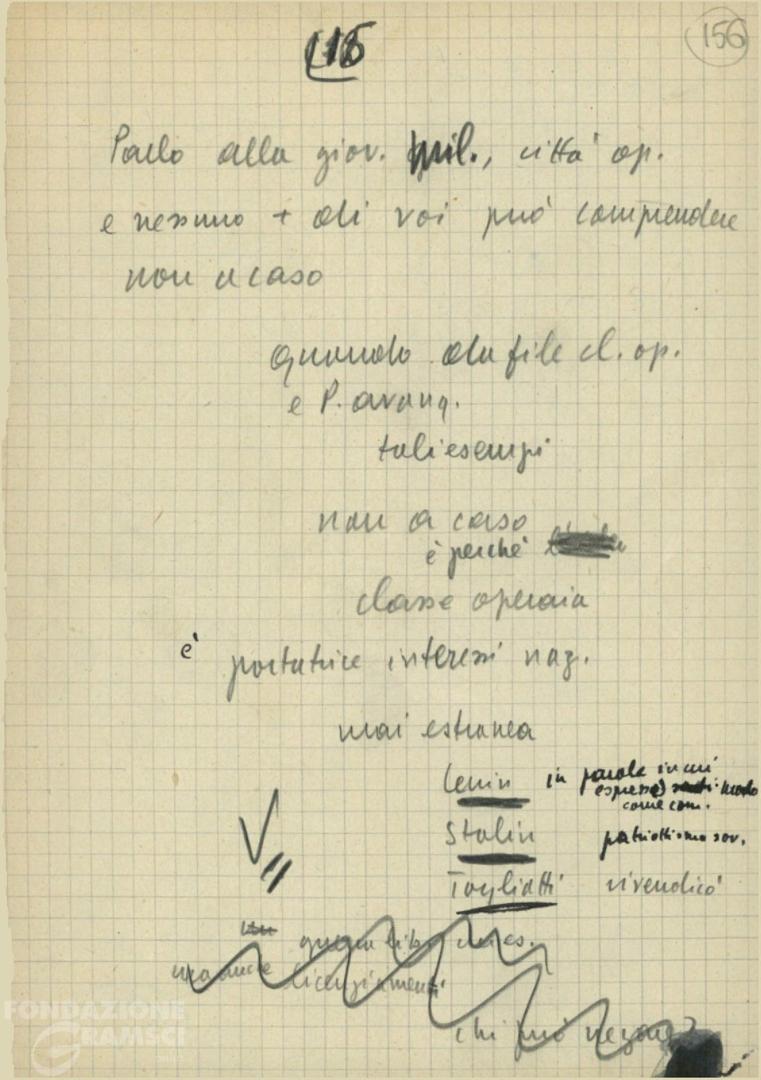 115
156
Parlo alla giov. mil., città op.
e nessuno + di voi può comprendere
non a caso
quando da file cl. op.
e P. avang.
tali esempi
non a caso
è perché
classe operaia
è portatrice interessi naz.
mai estranea
Lenin in parole in cui
espresse modo
come com.
Stalin patriottismo sov.
Togliatti rivendicò
guerra lib.
ma anche licenziamenti
chi può negare?
FONDAZIONE
GRAMSCI